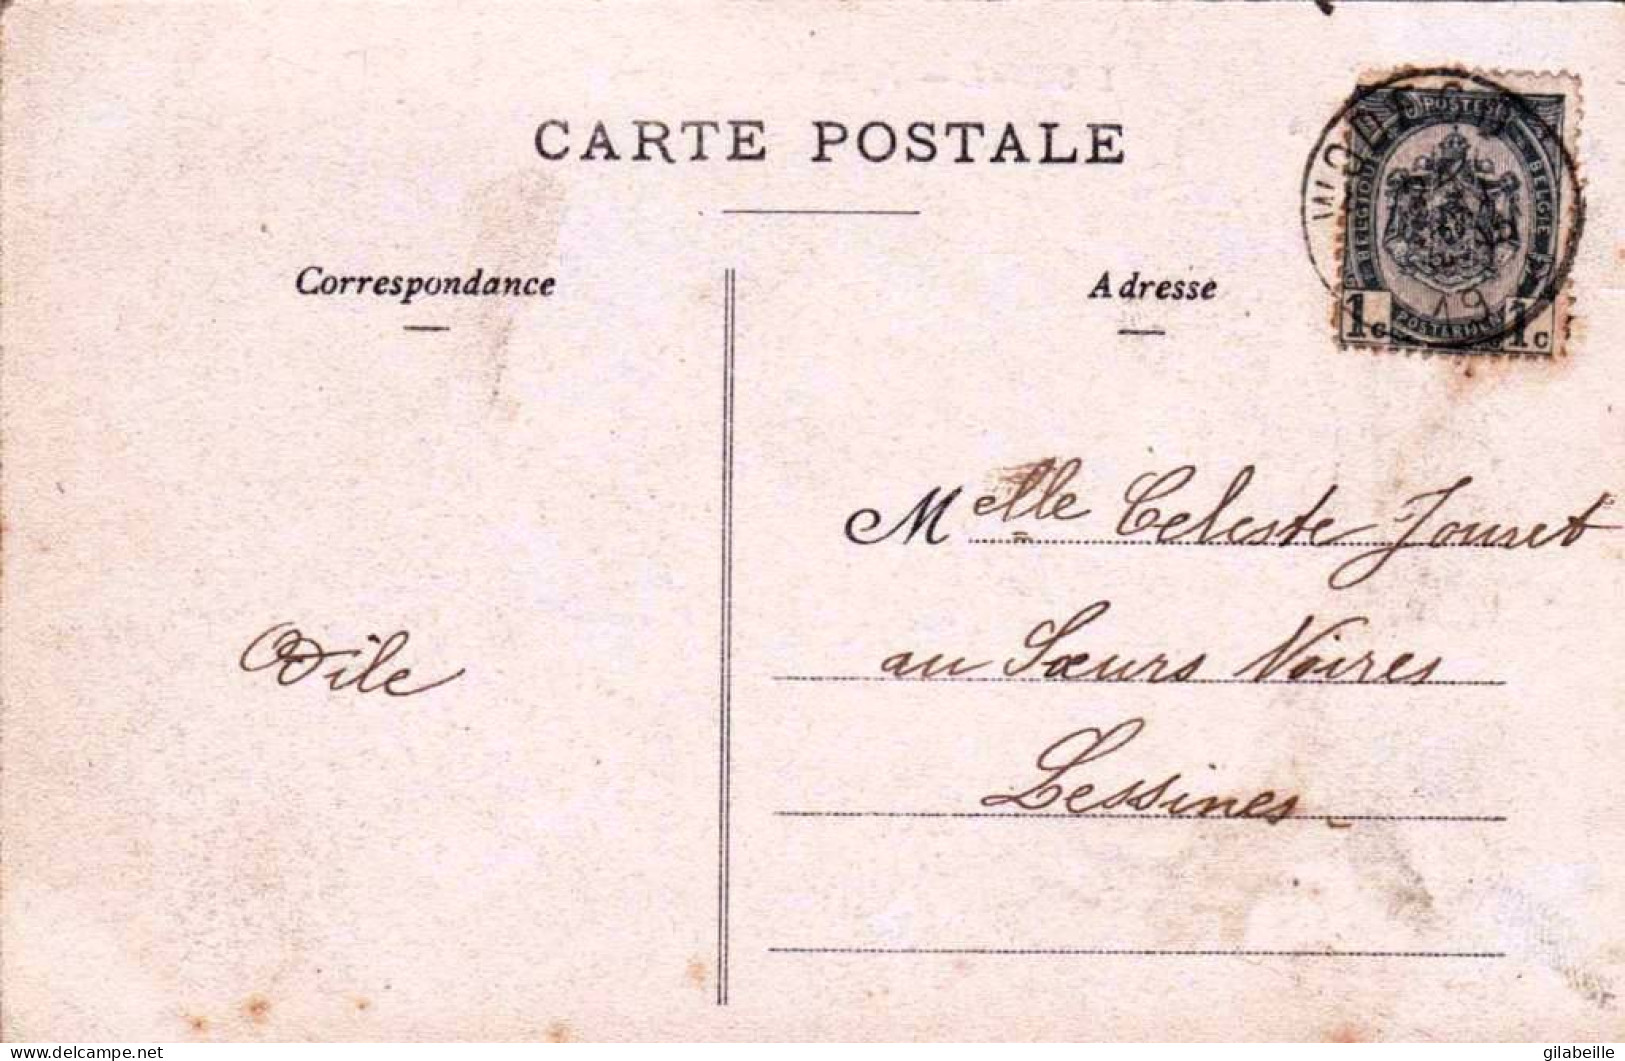 CARTE POSTALE
Correspondance
Adresse
POSTES
BELGIQUE
BELGIE
1c
1c
Melle Celeste Jouret
au Sœurs Noires
Lessines
Odile
delcampe.net
gilabeille